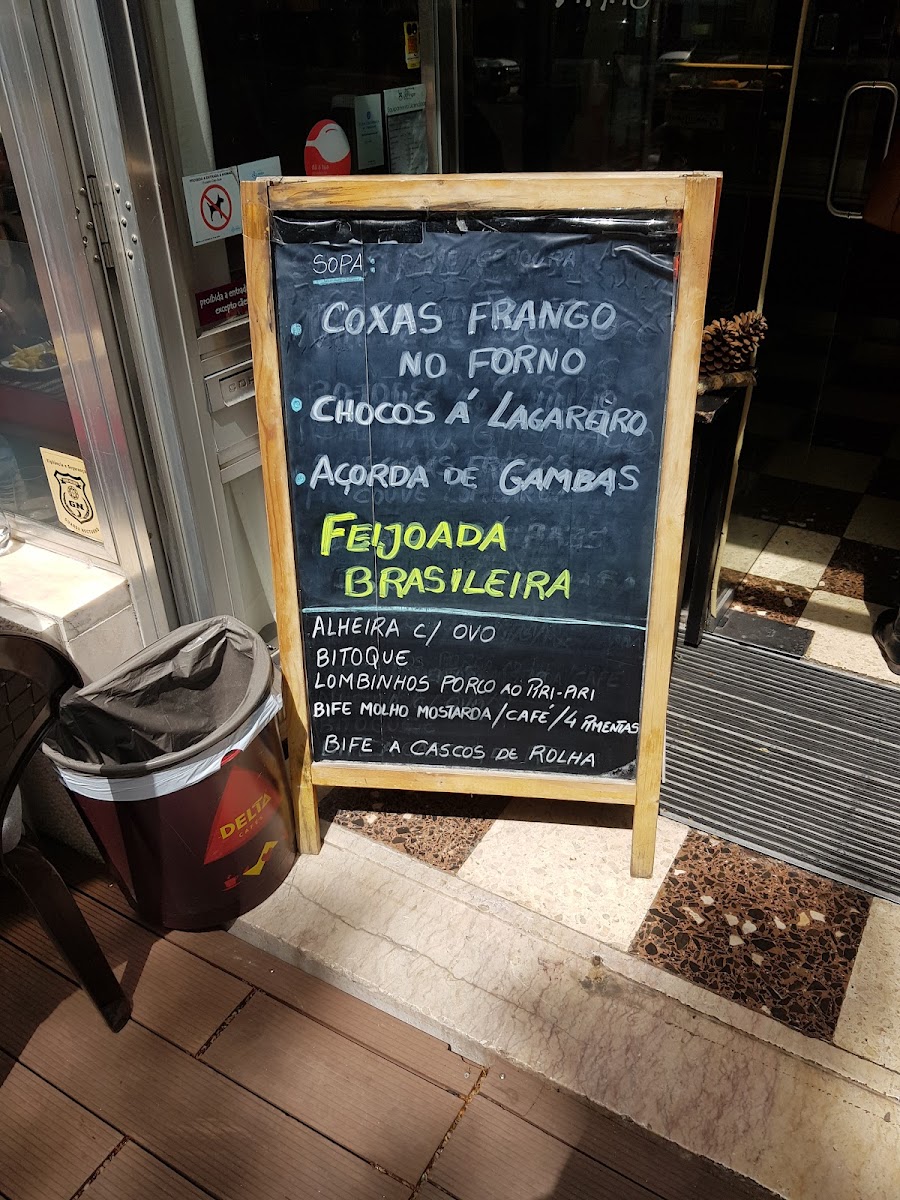 SOPA:
COXAS FRANGO
NO FORNO
CHOCOS Á LAGAREIRO
AÇORDA DE GAMBAS
FEIJOADA
BRASILEIRA
ALHEIRA C/ OVO
BITOQUE
LOMBINHOS PORCO AO PIRI-PIRI
BIFE MOLHO MOSTARDA/CAFÉ/4 PIMENTAS
BIFE A CASCOS DE ROLHA
proibida a entrada
excepto
DELTA
CAFÉS